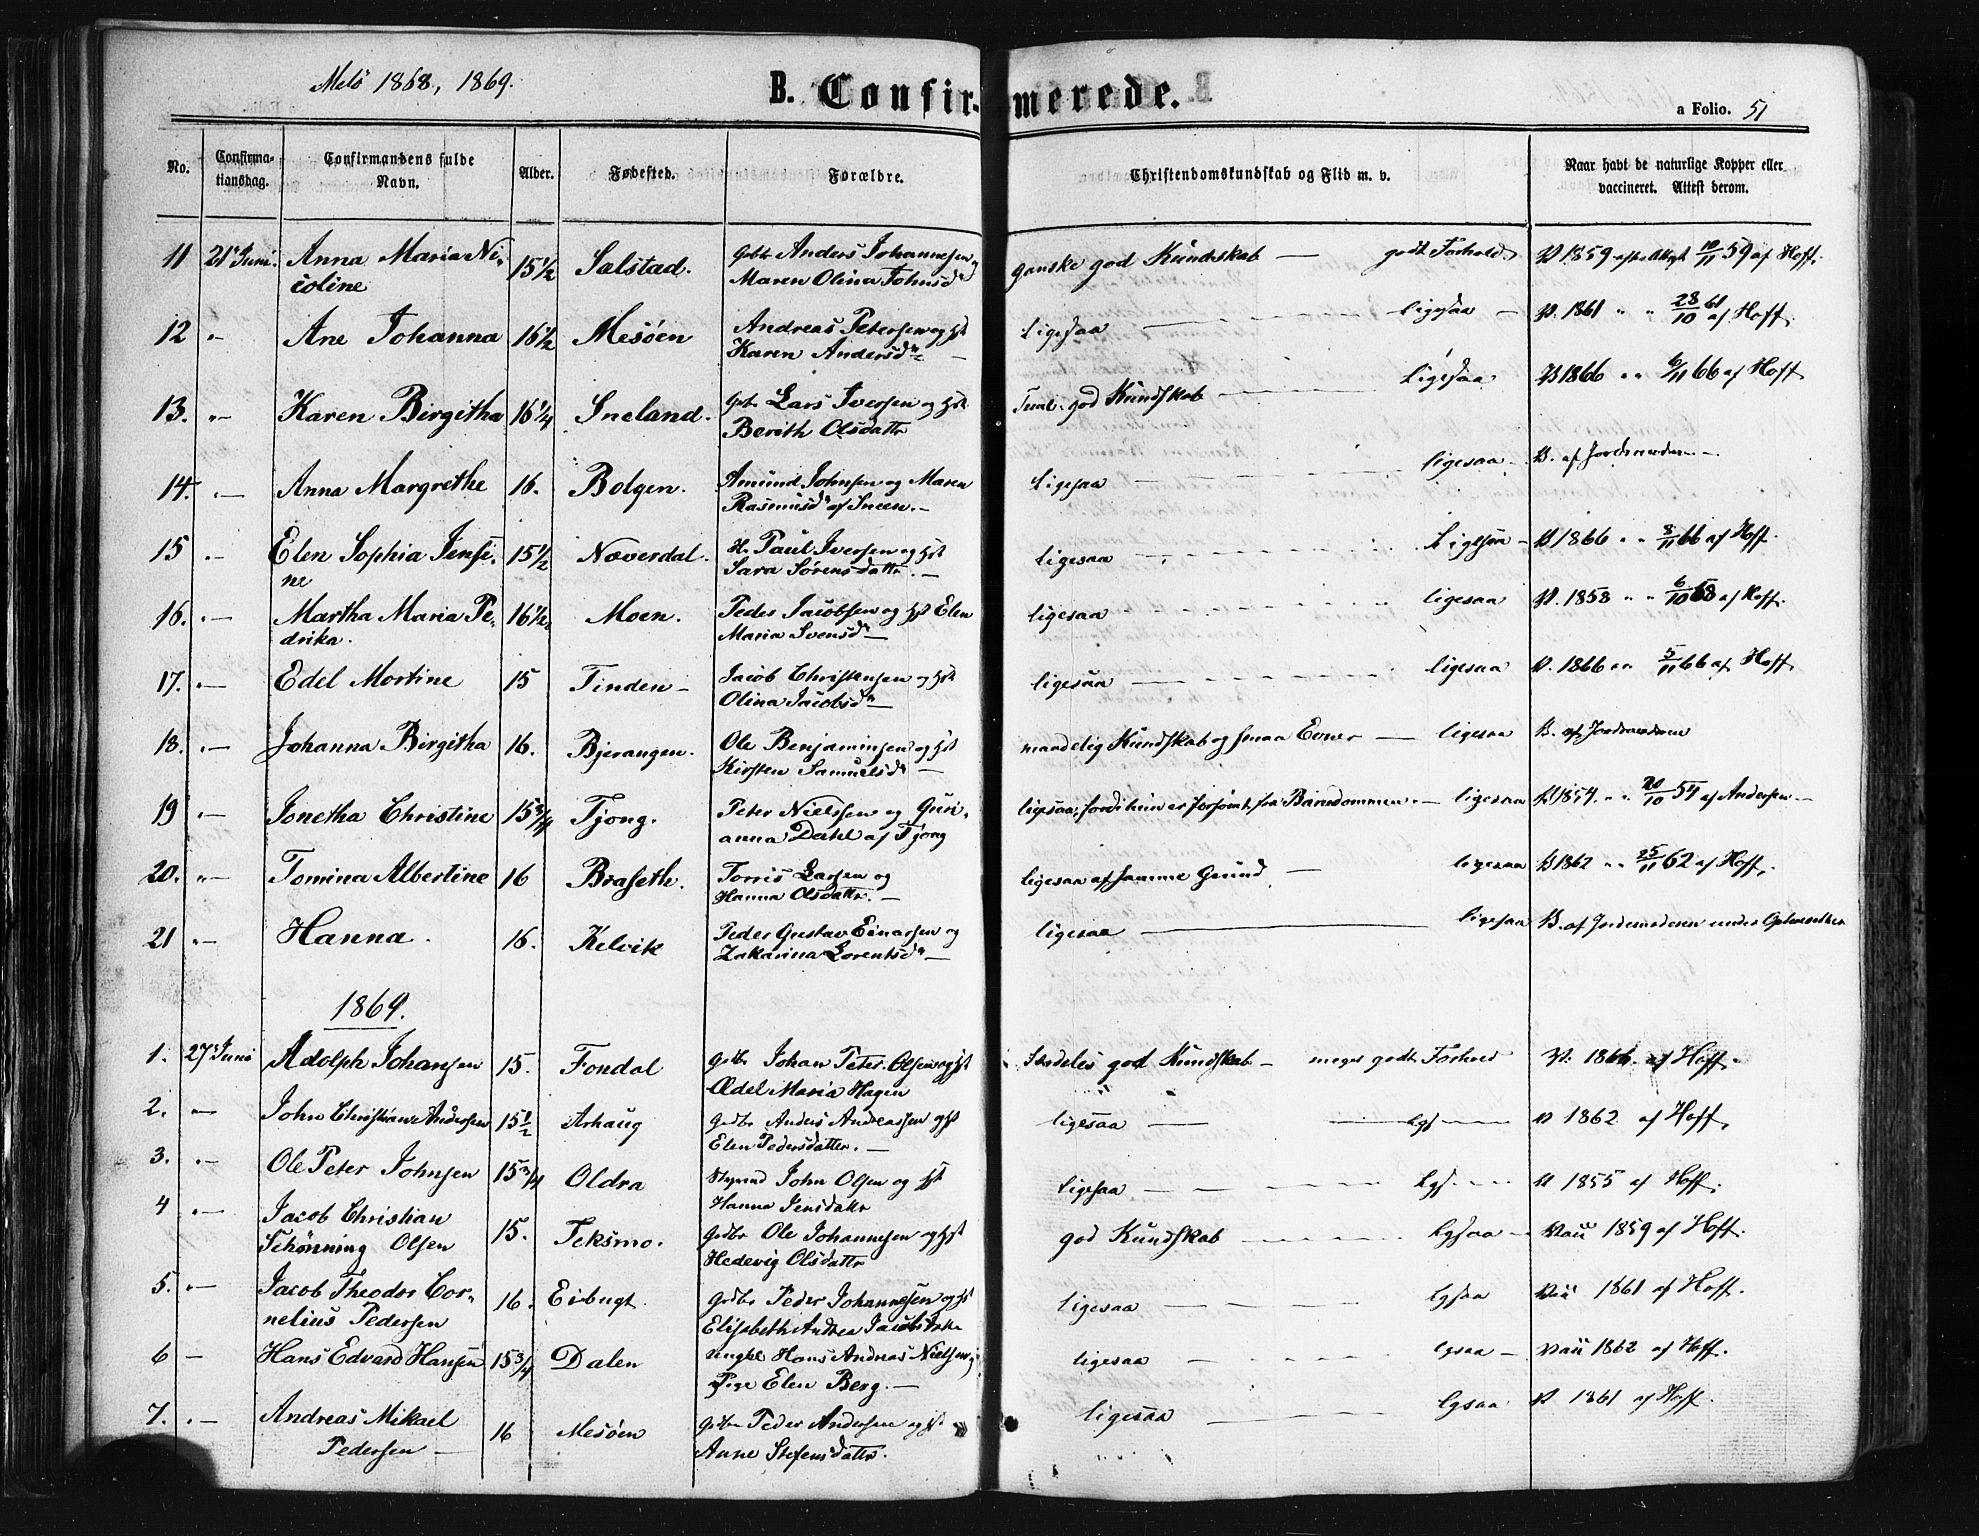 Melö 1868, 1869.
B. Confirmerede.
a Folio. 51
No.
Confirmationsdag.
Confirmandens fulde Navn.
Alder.
Fødested.
Forældre.
Christendomskundskab og Flid m. v.
Naar havt de naturlige Kopper eller vaccineret. Attest derom.
11 21 Juni. Anna Maria Ni- 15 1/2 Salstad. Gbr Anders Johannesen og ganske god Kundskab — godt Forhold V 1859 10/11 59 af Hoff.
coline Maren Olina Johnsd
12 " Ane Johanna 16 1/2 Mesöen Andreas Petersen og Hst Ligesaa ligesaa V. 1861 " " 28/10 61 af Hoff.
Karen Andersd
13. " Karen Birgitha 16 1/4 Sneland. Gbr Lars Iversen og Hst god Kundskab ligesaa V 1866 " " 6/11 66 af Hoff
Berith Olsdattr
14. " Anna Margrethe 16. Bolgen. Amund Johnsen og Maren ligesaa ligesaa V. af Jordmoderen
Rasmusd af Sneen.
15 " Elen Sophia Jensi- 15 1/2 Næverdal. Paul Iversen og Hst ligesaa Ligesaa V 1866 " " 8/11 66 af Hoff.
ne Sara Sörensdattr.
16. " Martha Maria Pe- 16 1/2 Moen. Peder Jacobsen og Hst Elen ligesaa ligesaa V. 1858 " " 6/10 58 af Hoff.
drika. Maria Svensd
17. " Edel Mortine 15 Tinden Jacob Christensen og Hst ligesaa ligesaa V. 1866 " " 5/11 66 af Hoff
Olina Jacobsd
18. " Johanna Birgitha 16. Bjerangen. Ole Benjaminsen og Hst maadelig Kundskab og smaa Evner — ligesaa V. af Jordmoderen
Kirsten Samuelsd
19 " Jonetha Christine 15 3/4 Tjong. Peter Nielssen og Gun- ligesaa, fordi hun er forsömt fra Barndommen. — ligesaa V 1854. " " 20/10 54 af Andersen
anna Dahl af Tjong
20. " Tomina Albertine 16 Braseth. Torris Larsen og ligesaa af samme Grund — ligesaa V 1862 " " 25/11 62 af Hoff.
Hanna Olsdattr.
21 " Hanna. 16. Kelvik Peder Gustav Einarsen og ligesaa ligesaa V. af Jordemoderen under
Zakarina Lorentsd
1869.
1. 27 Juni Adolph Johansen 15. Fondal Gdbr Johan Peter Olsen og Hst Særdeles god Kundskab — meget godt Forhold V. 1866 af Hoff.
Ædel Maria Hagen
2. " John Christian Andersen 15 1/2 Arhaug Gdbr Anders Andreassen og Hst ligesaa — lgs V 1862 af Hoff.
Elen Pedersdatter.
3. " Ole Peter Johnsen 15 3/4 Oldra John Olsen og Hst ligesaa lgs. V 1855 af Hoff.
Hanna Jensdatr
4 " Jacob Christian 15. Teksmo. Gdbr Ole Johannesen og Hst god Kundskab lgsaa Vac 1859 af Hoff.
Schönning Olsen Hedevig Olsdattr
5. " Jacob Theodor Cor- 16. Eibugt Gdbr Peder Johannesen og Hst ligesaa lgsaa Vac 1861 af Hoff.
nelius Pedersen Elisabeth Andrea
6 — Hans Edvard Hansen 15 3/4 Dalen Ungkl Hans Andreas Nielsen og ligesaa lgsaa Vac 1862 af Hoff.
Pige Elen Berg.
7. " Andreas Mikael 16 Mesöen Gdbr Peder Andersen og Hst ligesaa lgsaa V 1861 af Hoff.
Pedersen Anne Stefensdattr.